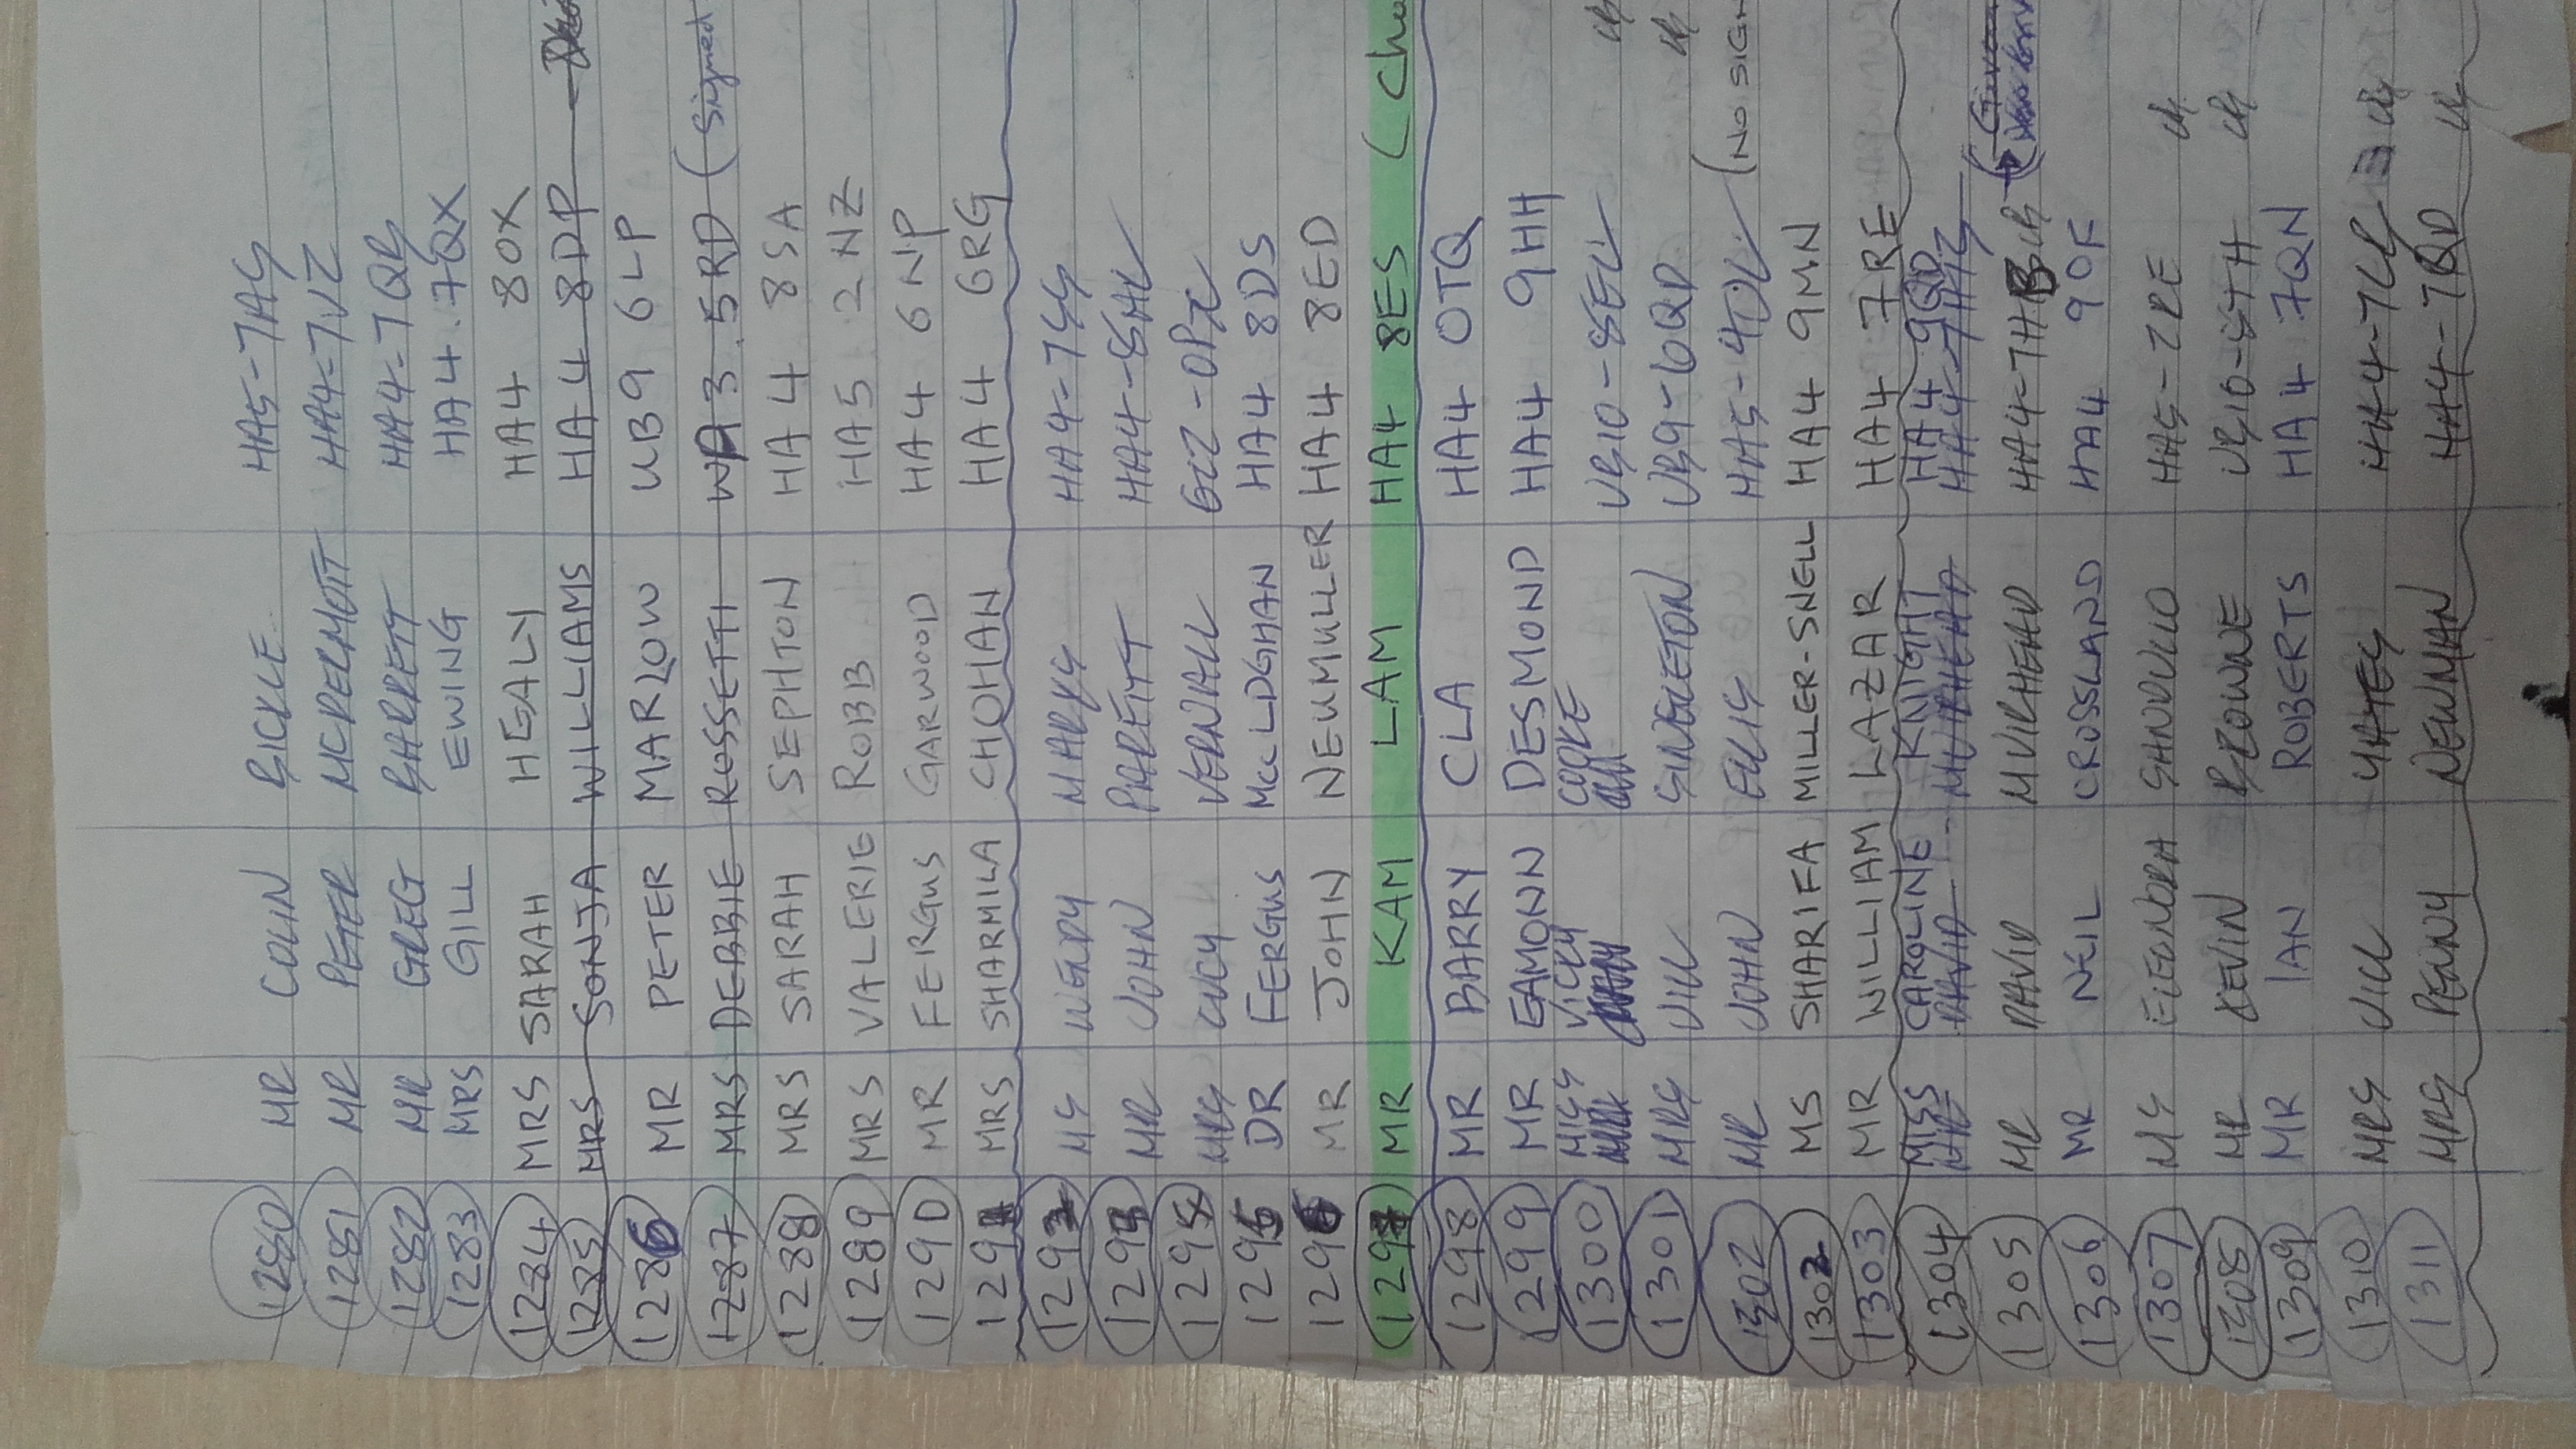 1280 MR COLIN BICKLE HA5-7AS
1281 MR PETER MCDERMOTT HA4-7UZ
1282 MR GREG BARRETT HA4-7QB
1283 MRS GILL EWING HA4.7QX
1284 MRS SARAH HEALY HA4 8OX
1285 MRS SONJA WILLIAMS HA4 8DP
1286 MR PETER MARLOW UB9 6LP
1287 MRS DEBBIE ROSSETTI WA3.5RD (Signed
1288 MRS SARAH SEPHTON HA4 8SA
1289 MRS VALERIE ROBB HA5 2NZ
1290 MR FERGUS GARWOOD HA4 6NP
1291 MRS SHARMILA CHOHAN HA4 6RG
1292 MS WENDY MARKS HA4-7SS
1293 MR JOHN PARFITT
MRS LUCY VERNALL
1295 DR FERGUS MCCLOGHAN HA4 8DS
1296 MR JOHN NEUMULLER HA4 8ED
1297 MR KAM LAM HA4 8ES (Cho
1298 MR BARRY CLA HA4 0TQ
1299 MR EAMONN DESMOND HA4 9HH
MISS VICKY COOKE
1300 UB10-8EL
1301 MRS JILL SINGLETON UB9-6QD
1302 MR JOHN ELLIS (NO SIGN
1302 MS SHARIFA MILLER-SNELL HA4 9MN
1303 MR WILLIAM LAZAR HA4 7RE
1304 MISS CAROLINE KNIGHT HA4 9QD
MR DAVID MUIRHEAD
(Given
1305 MR DAVID MUIRHEAD HA4-7HB
1306 MR NEIL CROSSLAND HA4 9OF
1307 MS ELEONORA SANDULLO HA5-2RE
1308 MR KEVIN BROWNE UB10-8TH
1309 MR IAN ROBERTS HA4 7QN
1310 MRS JILL YATES HA4-7LB
1311 MRS PENNY NEWMAN HA4-7QD